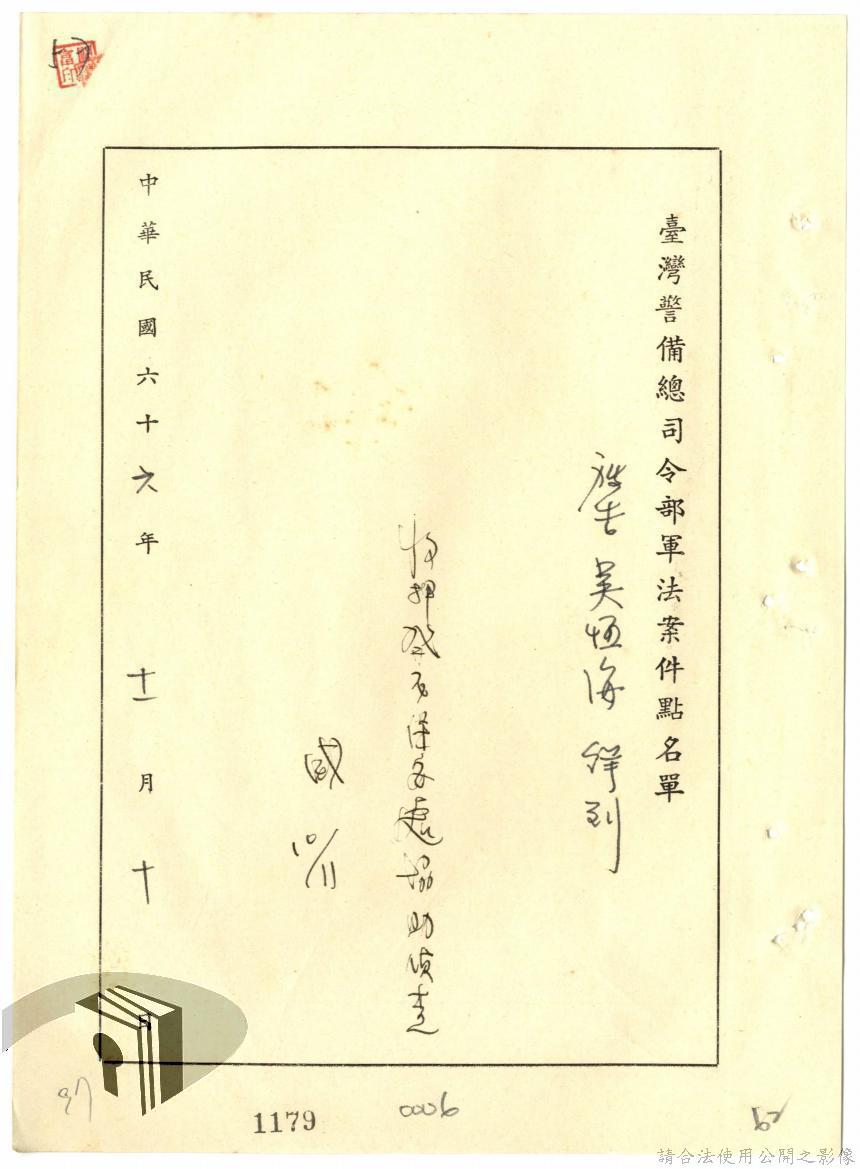 臺灣警備總司令部軍法案件點名單
被告 吳恒海 解到
收押 發交保安處協助偵查
威 10/11
中華民國六十六年十一月十日
97
1179
0006
62
請合法使用公開之影像